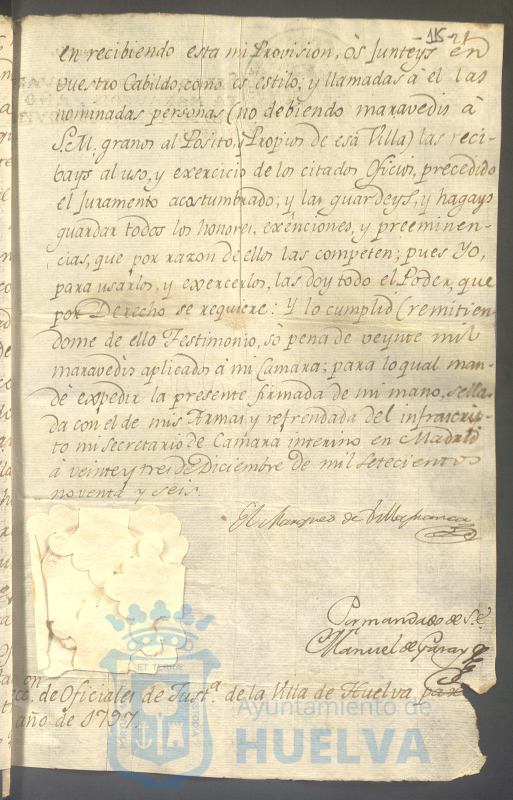 115-21
en recibiendo esta mi Provision, ós Junteys en
vuestro Cabildo, como es estilo; y llamadas à él las
nominadas personas (no debiendo maravedis à
S.M. granos al Posito, y Propios de esa Villa) las reci-
bays al uso, y exercicio de los citados Oficios, precedido
el Juramento acostumbrado; y las guardeys, y hagays
guardar todos los honores, exênciones, y preeminen-
cias, que por razon de ellos las competen; pues Yo,
para usarlos, y exercerlos, las doy todo el Poder, que
por Derecho se requiere: Y lo cumplid (remitien-
dome de ello Testimonio, sò pena de veynte mil
maravedis aplicados à mi Camara; para lo qual man-
dé expedir la presente firmada de mi mano, sella-
da con el de mis Armas y refrendada del infraescri-
to mi Secretario de Camara interino en Madrid
à veinte y tres de Diciembre de mil setecientos
noventa y seis.
El Marques de Villafranca
Por mandado de S.E.
Manuel de Garay
en
de Oficiales de Just.ª de la Villa de Huelva para
año de 1797.
Ayuntamiento de
HUELVA